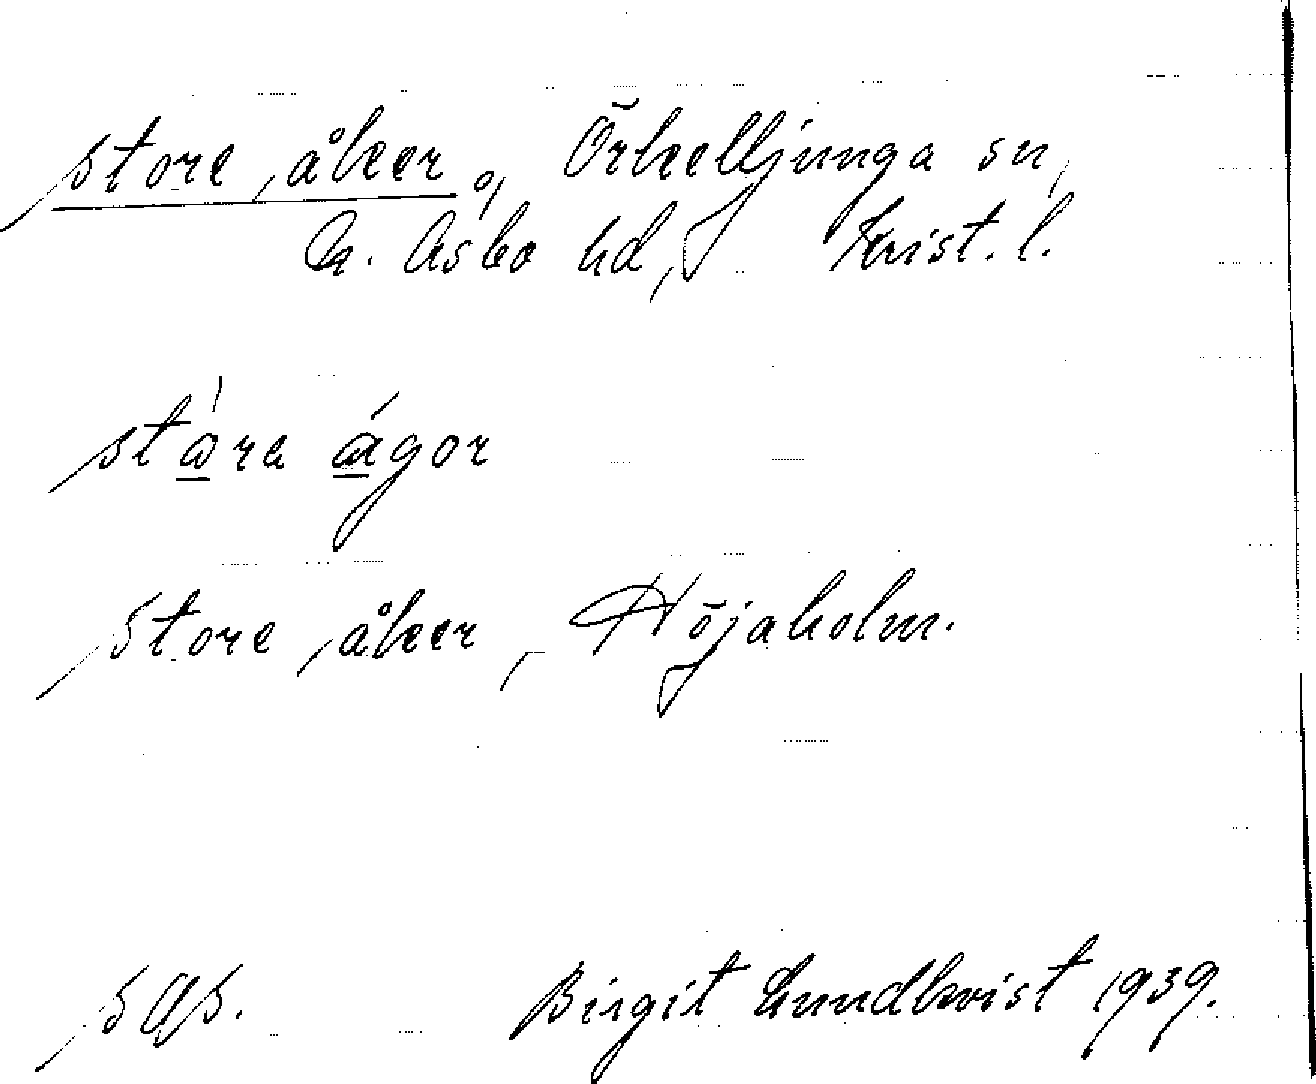 store åker, Örkelljunga sn,
N. Åsbo hd, Krist. l.
stora ágor
store åker, Höjaholm.
Birgit Lundkvist 1939.